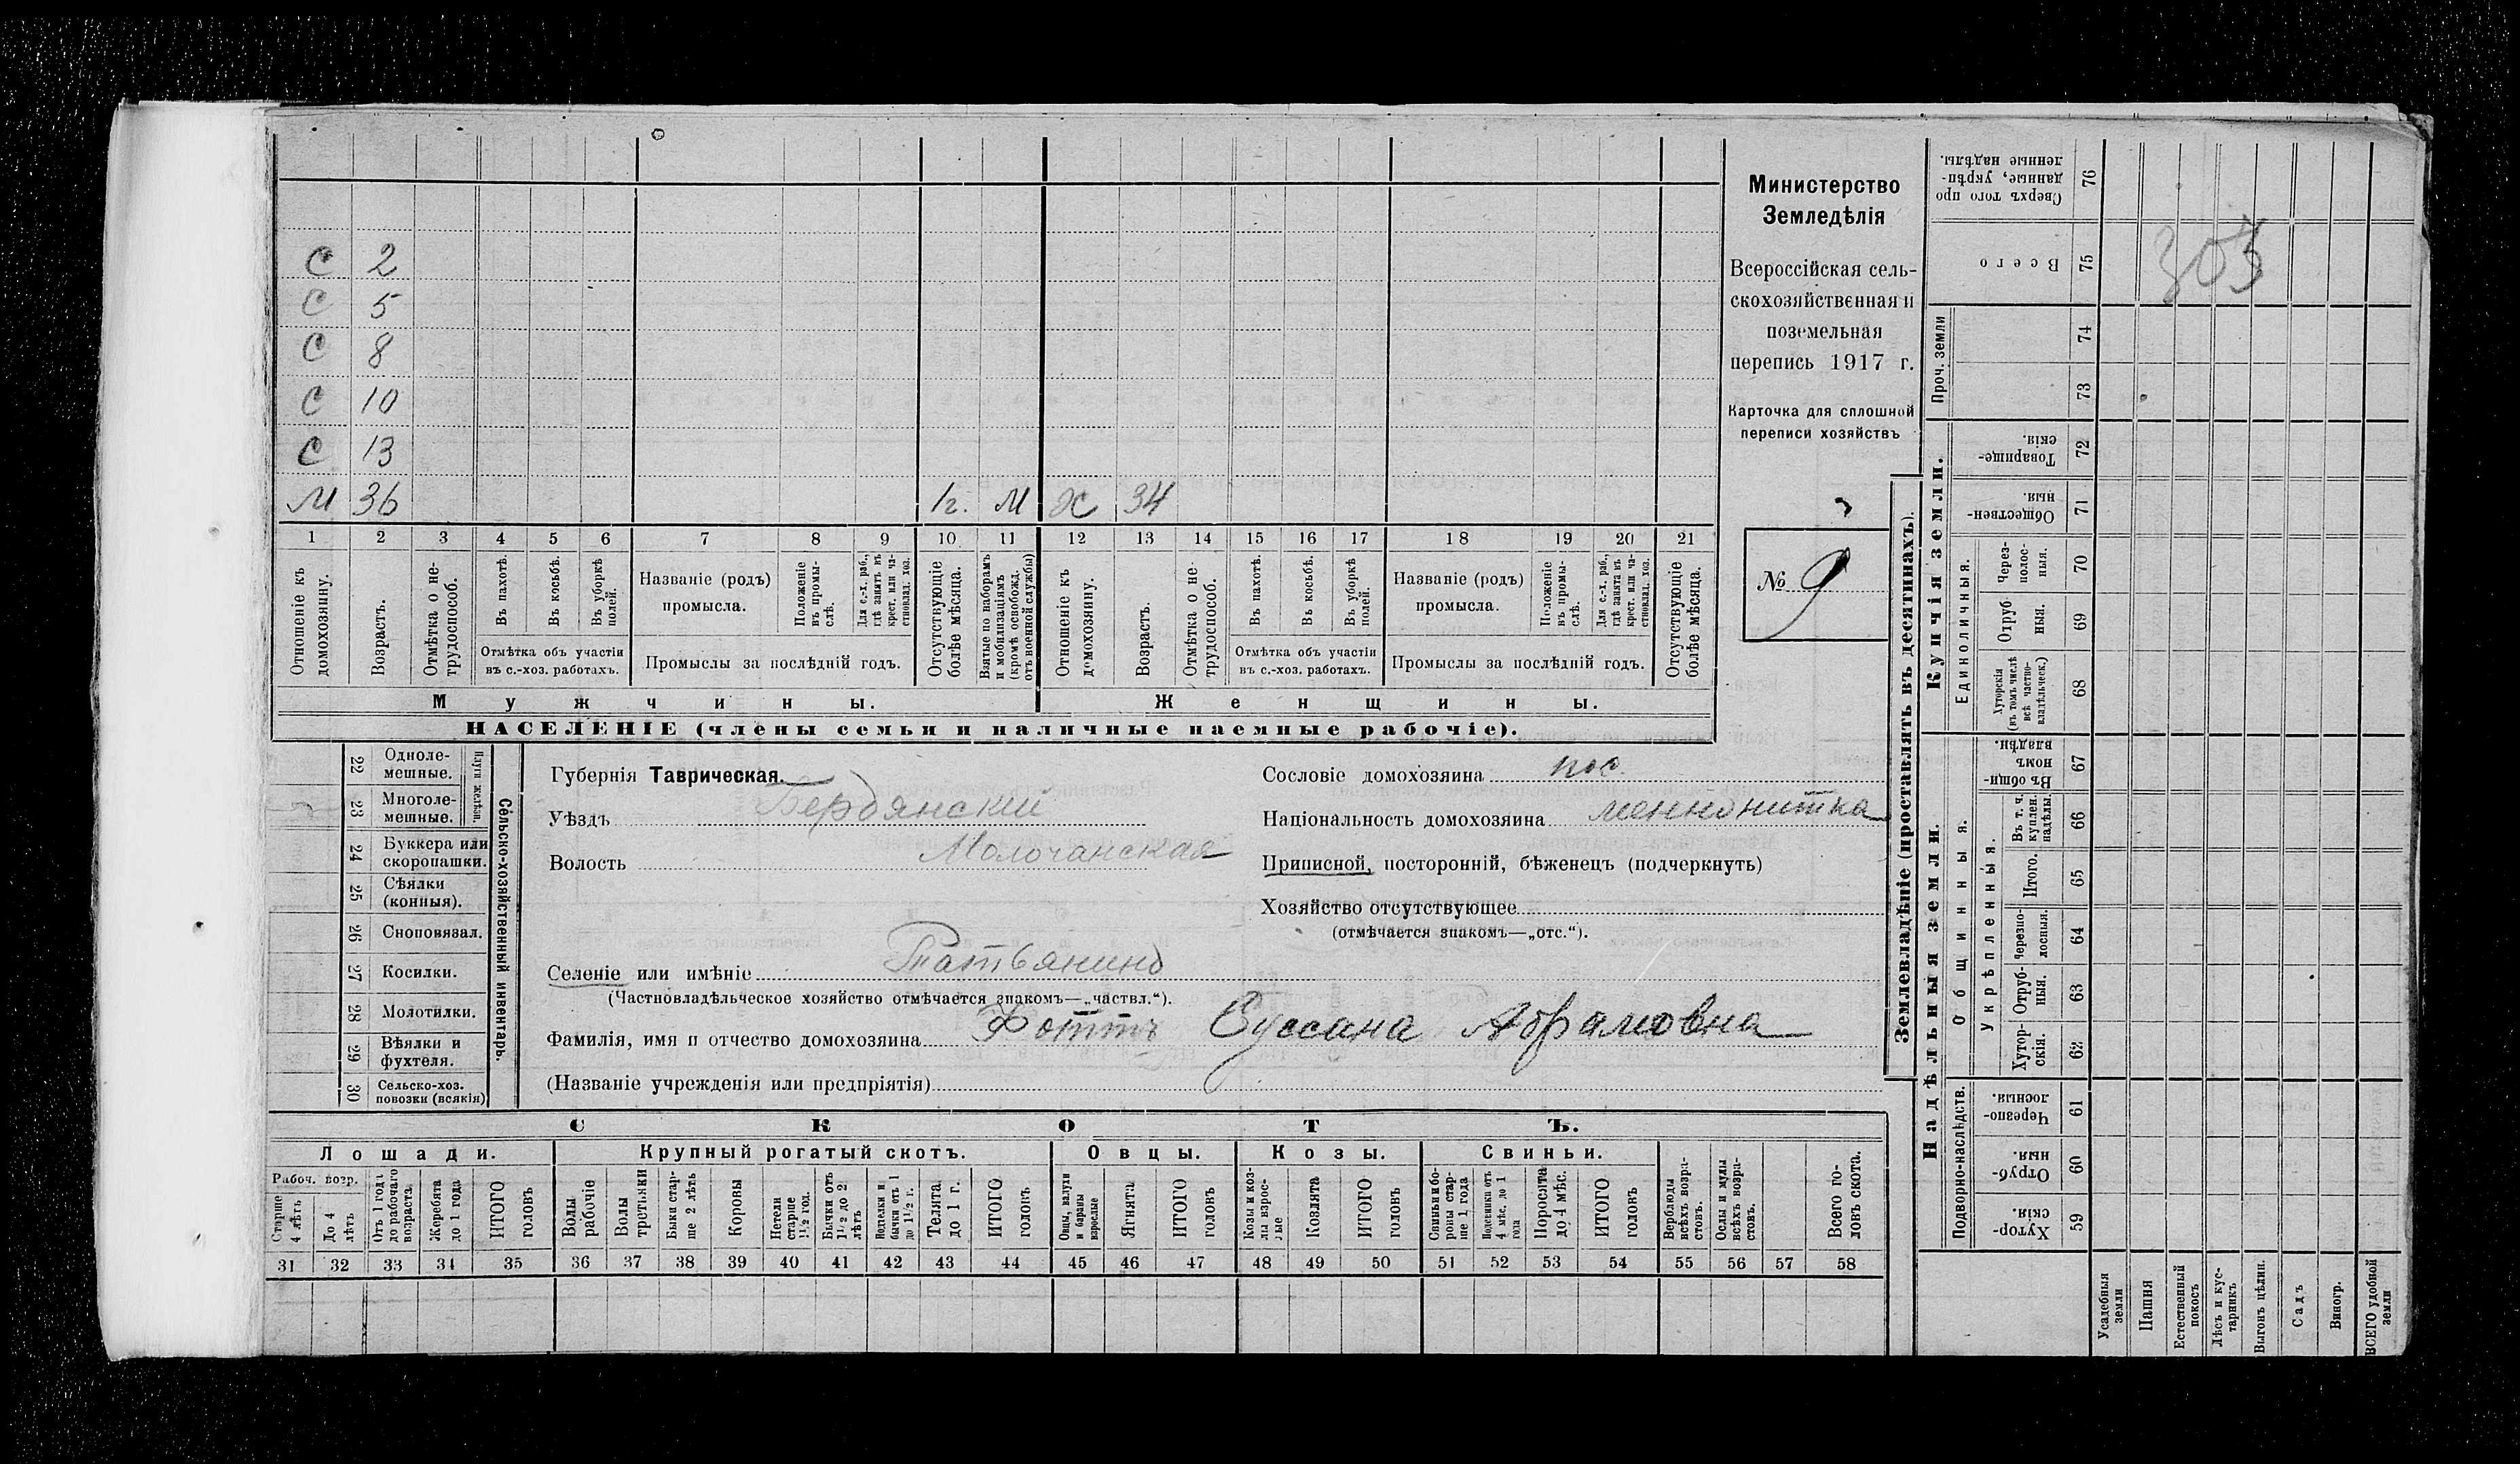 С 2
С 5
С 8
С 10
С 13
М 36 1г. М Х 34
1 2 3 4 5 6 7 8 9 10 11 12 13 14 15 16 17 18 19 20 21
Отношеніе къ домохозяину.
Возрастъ.
Отмѣтка о нетрудоспособ.
Въ пахотѣ.
Въ косьбѣ.
Въ уборкѣ полей.
Отмѣтка объ участіи
въ с.-хоз. работахъ.
Названіе (родъ)
промысла.
Положеніе въ промыслѣ.
Для с.-х. раб., гдѣ занятъ въ крест. или частновлад. хоз.
Промыслы за послѣдній годъ.
Отсутствующіе болѣе мѣсяца.
Взятые по наборамъ и мобилизаціямъ (кромѣ освобожд. отъ военной службы)
Отношеніе къ домохозяину.
Возрастъ.
Отмѣтка о нетрудоспособ.
Въ пахотѣ.
Въ косьбѣ.
Въ уборкѣ полей.
Отмѣтка объ участіи
въ с.-хоз. работахъ.
Названіе (родъ)
промысла.
Положеніе въ промыслѣ.
Для с.-х. раб., гдѣ занята въ крест. или частновлад. хоз.
Промыслы за послѣдній годъ.
Отсутствующіе болѣе мѣсяца.
Мужчины. Женщины.
НАСЕЛЕНІЕ (члены семьи и наличные наемные рабочіе).
Министерство
Земледѣлія
Всероссійская сель-
скохозяйственная и
поземельная
перепись 1917 г.
Карточка для сплошной
переписи хозяйствъ
№ 9
22 Однолемешные.
23 Многолемешные.
Плуги желѣзн.
24 Буккера или скоропашки.
25 Сѣялки (конныя).
26 Сноповязал.
27 Косилки.
28 Молотилки.
29 Вѣялки и фухтеля.
30 Сельско-хоз. повозки (всякія)
Сельско-хозяйственный инвентарь.
Губернія Таврическая.
Уѣздъ Бердянскій
Волость Молочанская
Селеніе или имѣніе Татьянино
(Частновладѣльческое хозяйство отмѣчается знакомъ—„частвл.“).
Фамилія, имя и отчество домохозяина Фоттъ Суссана Абрамовна
(Названіе учрежденія или предпріятія)
Сословіе домохозяина пос.
Національность домохозяина меннонитка
Приписной, посторонній, бѣженецъ (подчеркнуть)
Хозяйство отсутствующее
(отмѣчается знакомъ—„отс.“).
СКОТЪ.
Лошади. Крупный рогатый скотъ. Овцы. Козы. Свиньи.
Рабоч. возр.
Старше 4 лѣтъ
До 4 лѣтъ
Отъ 1 года до рабочаго возраста
Жеребята до 1 года
ИТОГО головъ
Волы рабочіе
Волы третьяки
Быки старше 2 лѣтъ
Коровы
Нетели старше 1½ год.
Бычки отъ 1½ до 2 лѣтъ
Подтелки и бычки отъ 1 до 1½ г.
Телята до 1 г.
ИТОГО головъ
Овцы, валухи и бараны взрослые
Ягнята
ИТОГО головъ
Козы и козлы взрослые
Козлята
ИТОГО головъ
Свиньи и боровы старше 1 года
Подсвинки отъ 4 мѣс. до 1 года
Поросята до 4 мѣс.
ИТОГО головъ
Верблюды всѣхъ возрастовъ.
Ослы и мулы всѣхъ возрастовъ.
Всего головъ скота.
31 32 33 34 35 36 37 38 39 40 41 42 43 44 45 46 47 48 49 50 51 52 53 54 55 56 57 58
Землевладѣніе (проставлять въ десятинахъ).
Купчія земли.
Надѣльныя земли.
Сверхъ того проданные, укрѣпленные надѣлы. 76
Всего 75
305
Проч. земли 74 73
Товарищескія. 72
Общественныя. 71
Единоличныя.
Черезполосныя. 70
Отрубныя. 69
Хуторскія (въ томъ числѣ всѣ частновладѣльческ.) 68
Общинныя.
Въ общинномъ владѣн. 67
Укрѣпленныя.
Въ т. ч. куплен. надѣлы. 66
Итого. 65
Черезполосныя. 64
Отрубныя. 63
Хуторскія. 62
Подворно-наслѣдств.
Черезполосныя. 61
Отрубныя. 60
Хуторскія. 59
Усадебныя земли
Пашня
Естественный покосъ
Лѣсъ и кустарникъ
Выгонъ цѣлин.
Садъ
Виногр.
ВСЕГО удобной земли